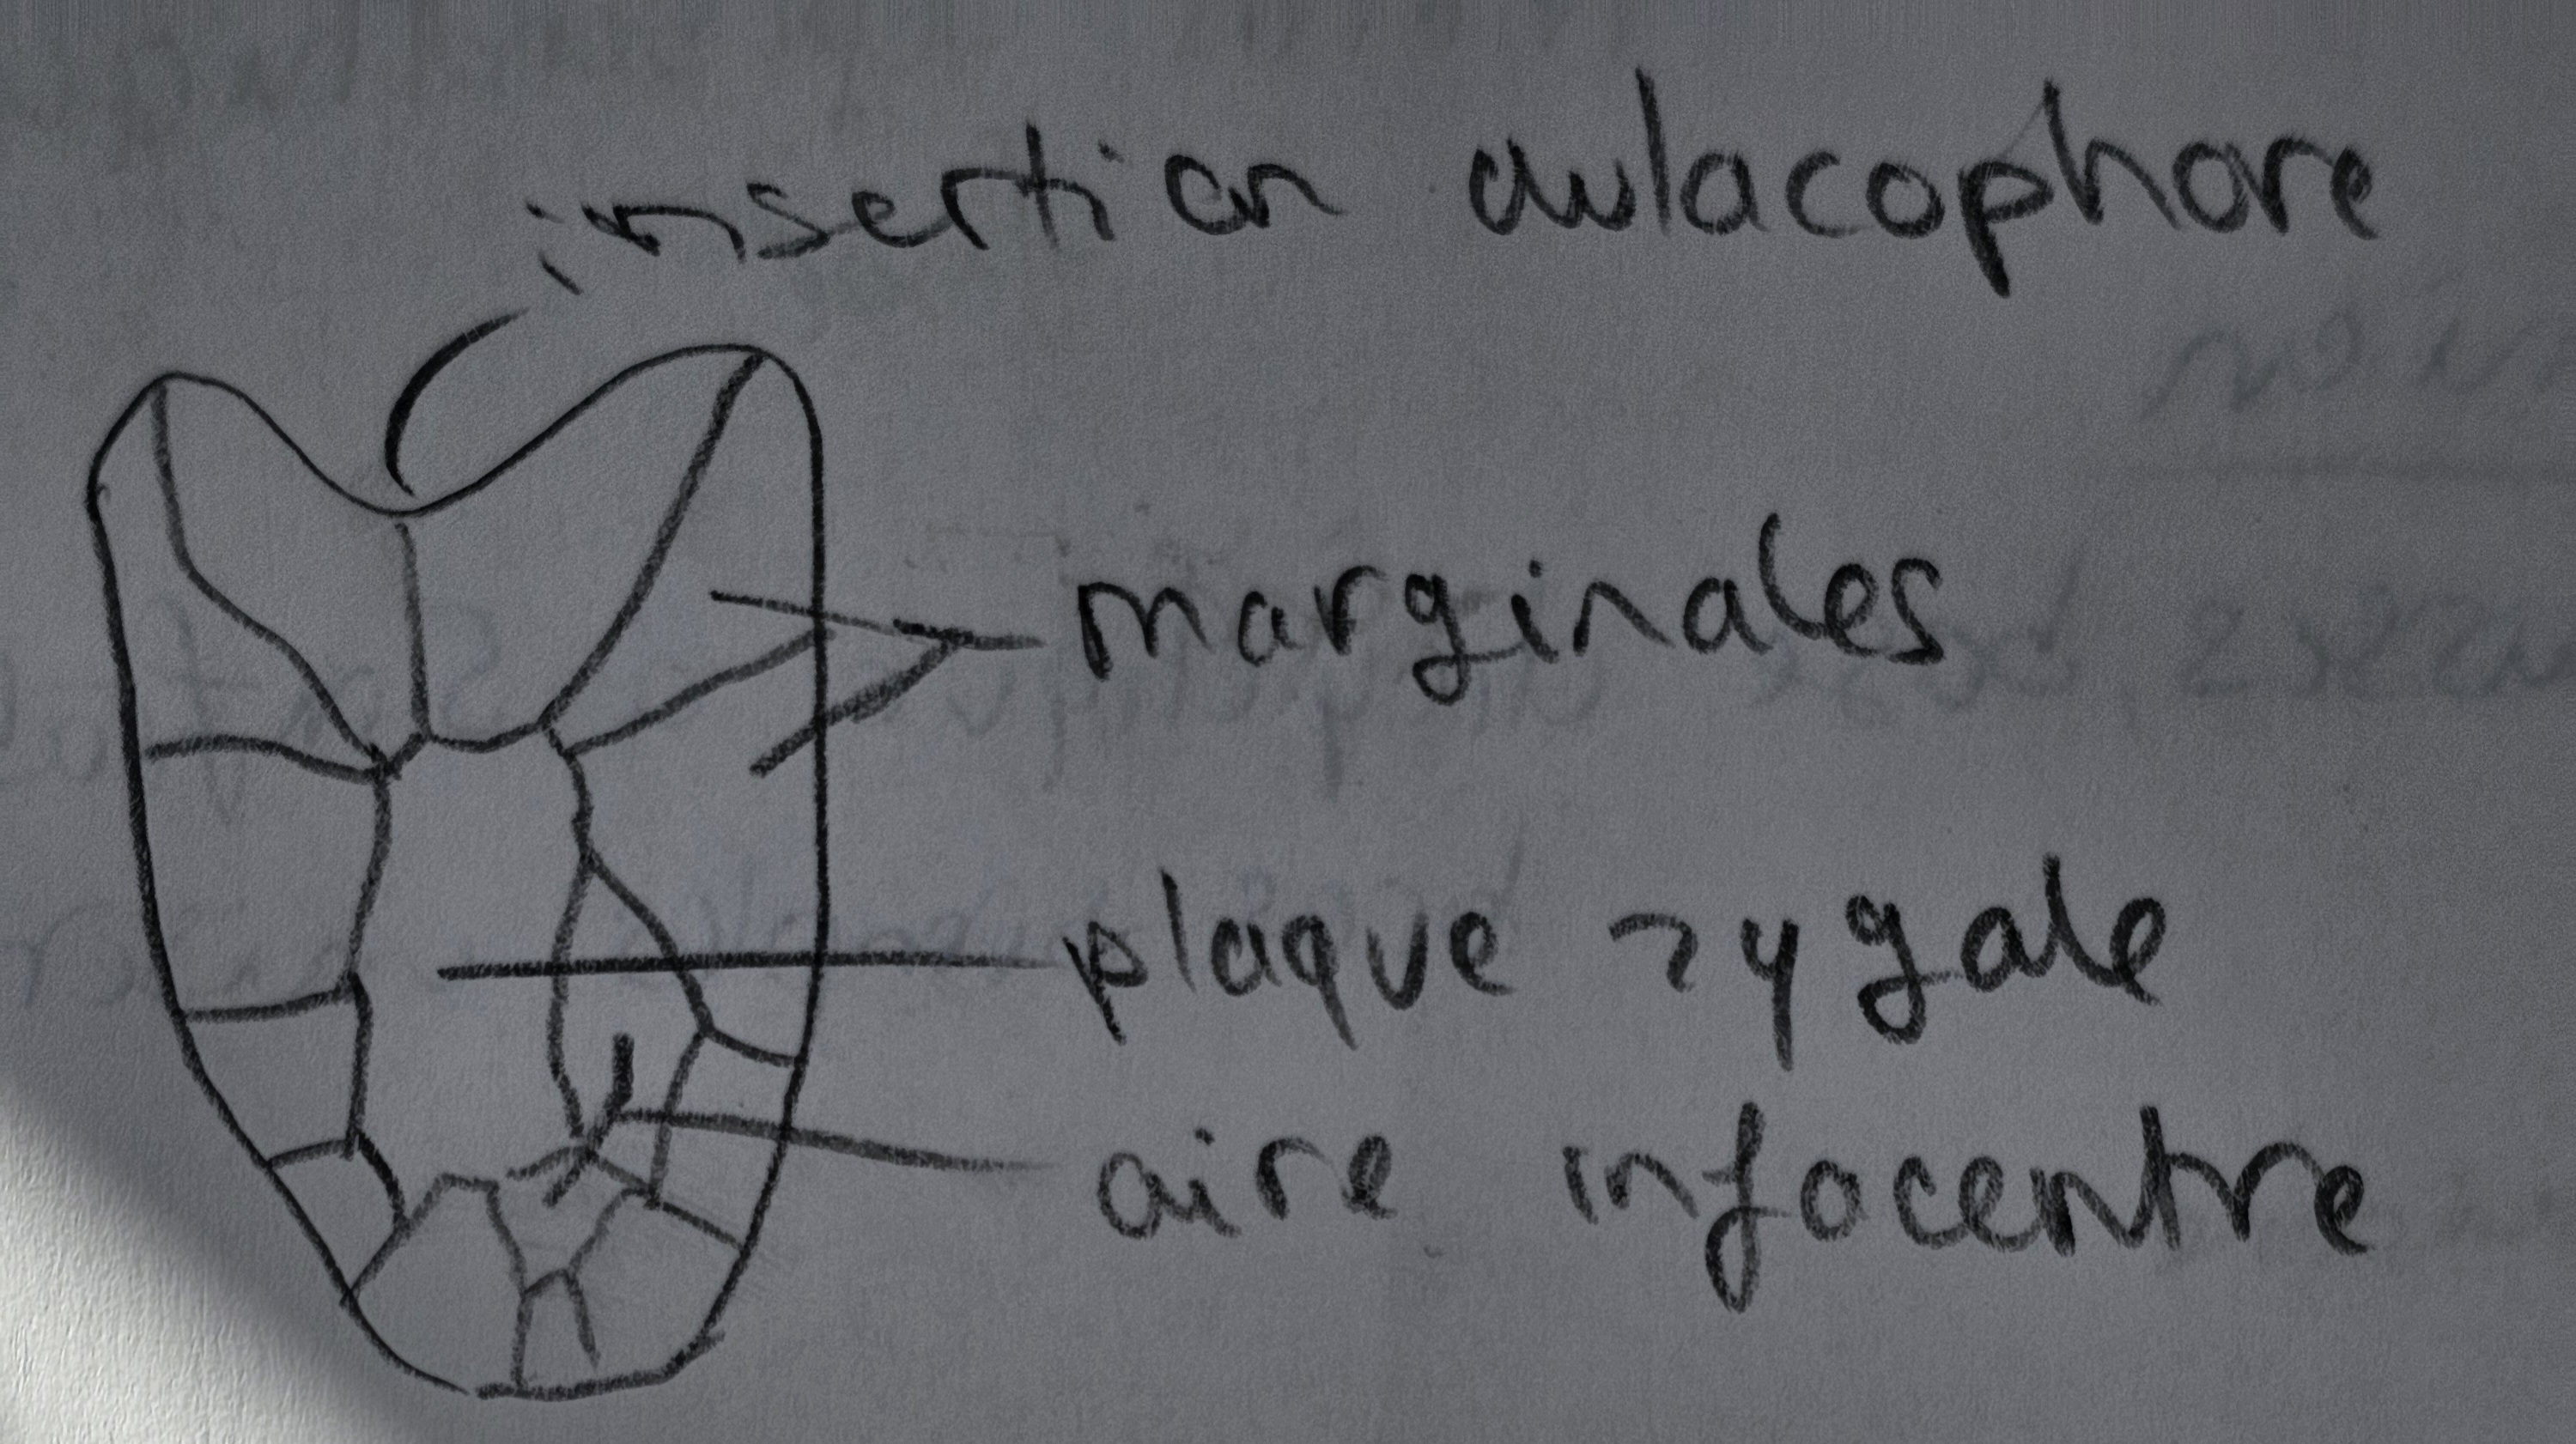 insertion aulacophore
marginales
plaque zygale
aire infocentre